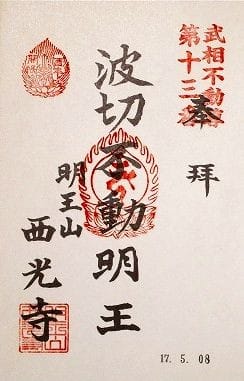 武相不動
第十三番
奉拝
波切不動明王
明王山
西光寺
17. 5. 08